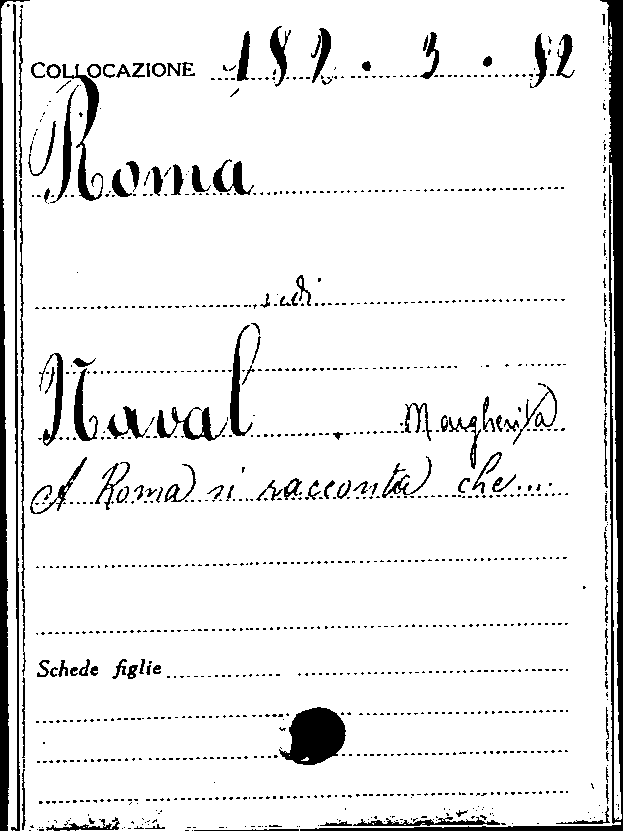 COLLOCAZIONE 182 . 3 . 82
Roma
vedi
Naval . Margherita
A Roma si racconta che....
Schede figlie